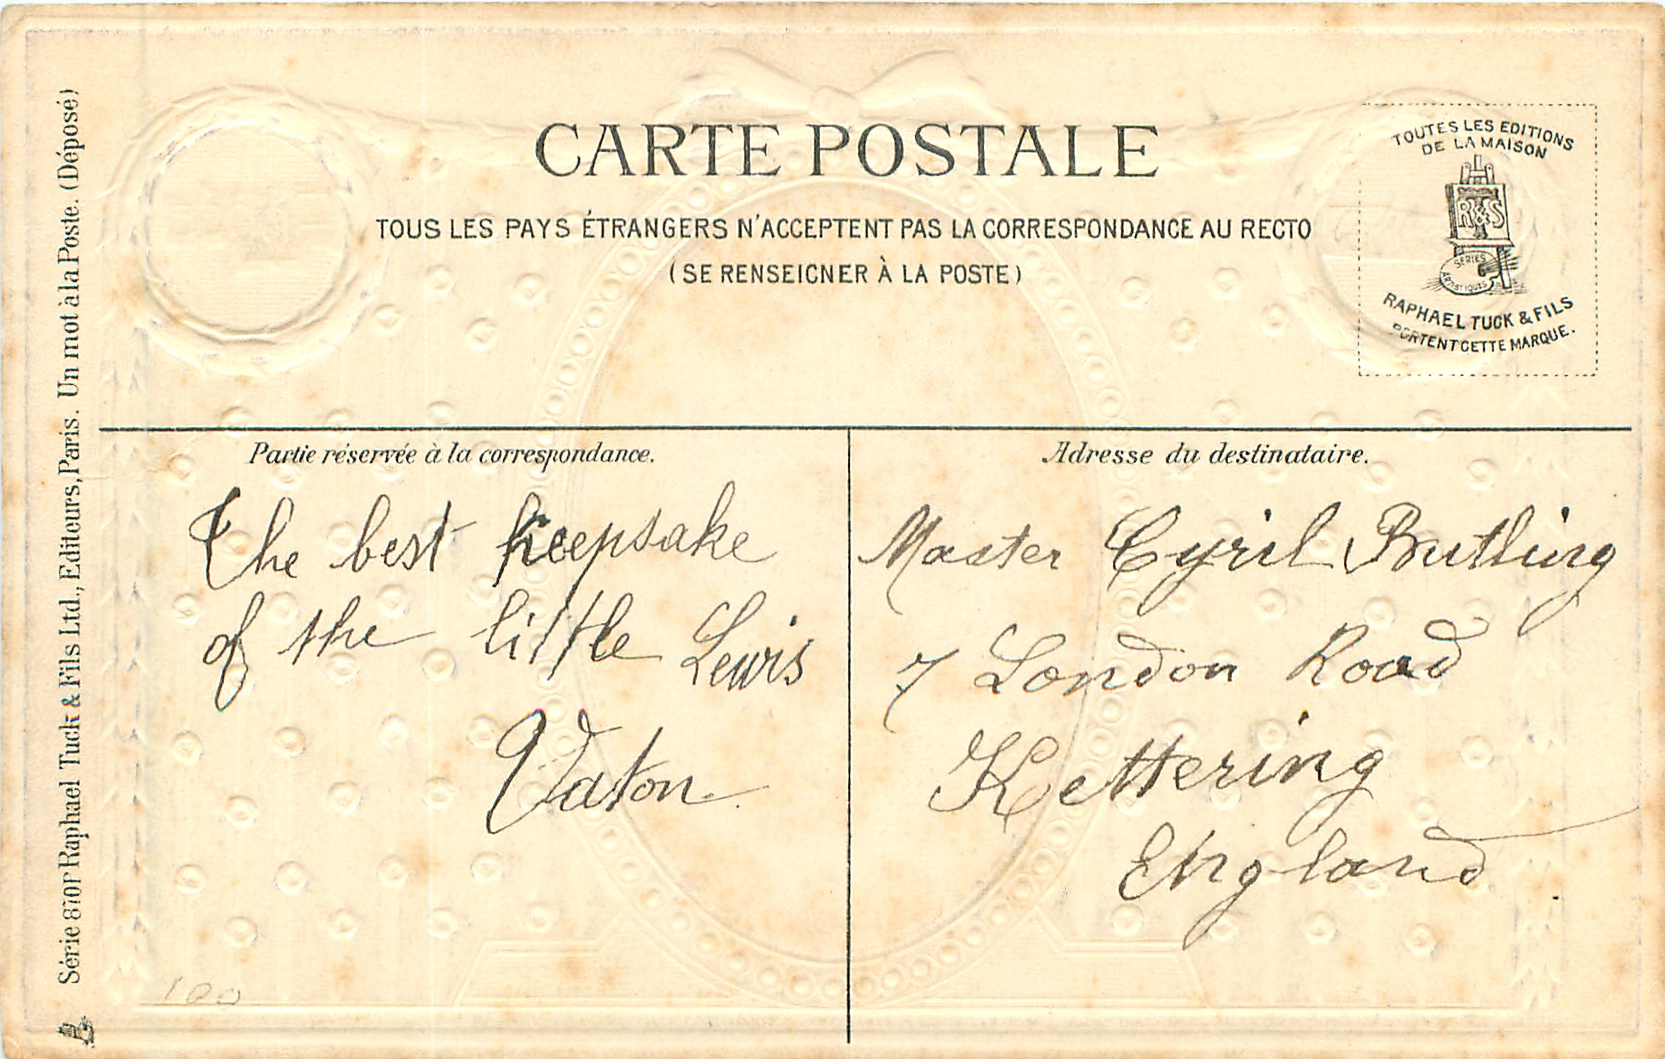 CARTE POSTALE
TOUS LES PAYS ÉTRANGERS N'ACCEPTENT PAS LA CORRESPONDANCE AU RECTO
(SE RENSEIGNER À LA POSTE)
TOUTES LES EDITIONS
DE LA MAISON
R&S
SERIES
ARTISTIQUES
RAPHAEL TUCK & FILS
PORTENT CETTE MARQUE.
Série 870P Raphael Tuck & Fils Ltd., Editeurs, Paris. Un mot à la Poste. (Déposé)
Partie réservée à la correspondance.
The best keepsake
of the little Lewis
Vaton
Adresse du destinataire.
Master Cyril Butling
7 London Road
Kettering
England
100